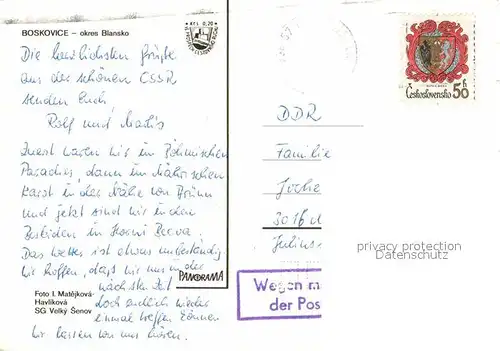 BOSKOVICE – okres Blansko
Die herzlichsten Grüße
aus der schönen CSSR
senden Euch,
Rolf und
Zuerst waren wir im Böhmischen
Paradies, dann im Mährischen
Karst in der Nähe von Brünn
und jetzt sind wir in den
Beskiden in Horní Bečva.
Das Wetter ist etwas unbeständig.
Wir hoffen, daß wir uns in der
nächsten Zeit
doch endlich wieder
einmal treffen können.
Wir lassen von uns hören.
PANORAMA
Foto I. Matějková-
Havlíková
SG Velký Šenov
Československo 50 h
DDR
Familie
Joche
3016 M
Julius
privacy protection
Datenschutz
Wegen m
der Pos